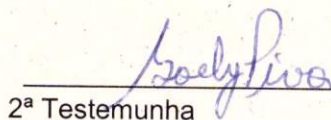 Goely Piva
2ª Testemunha